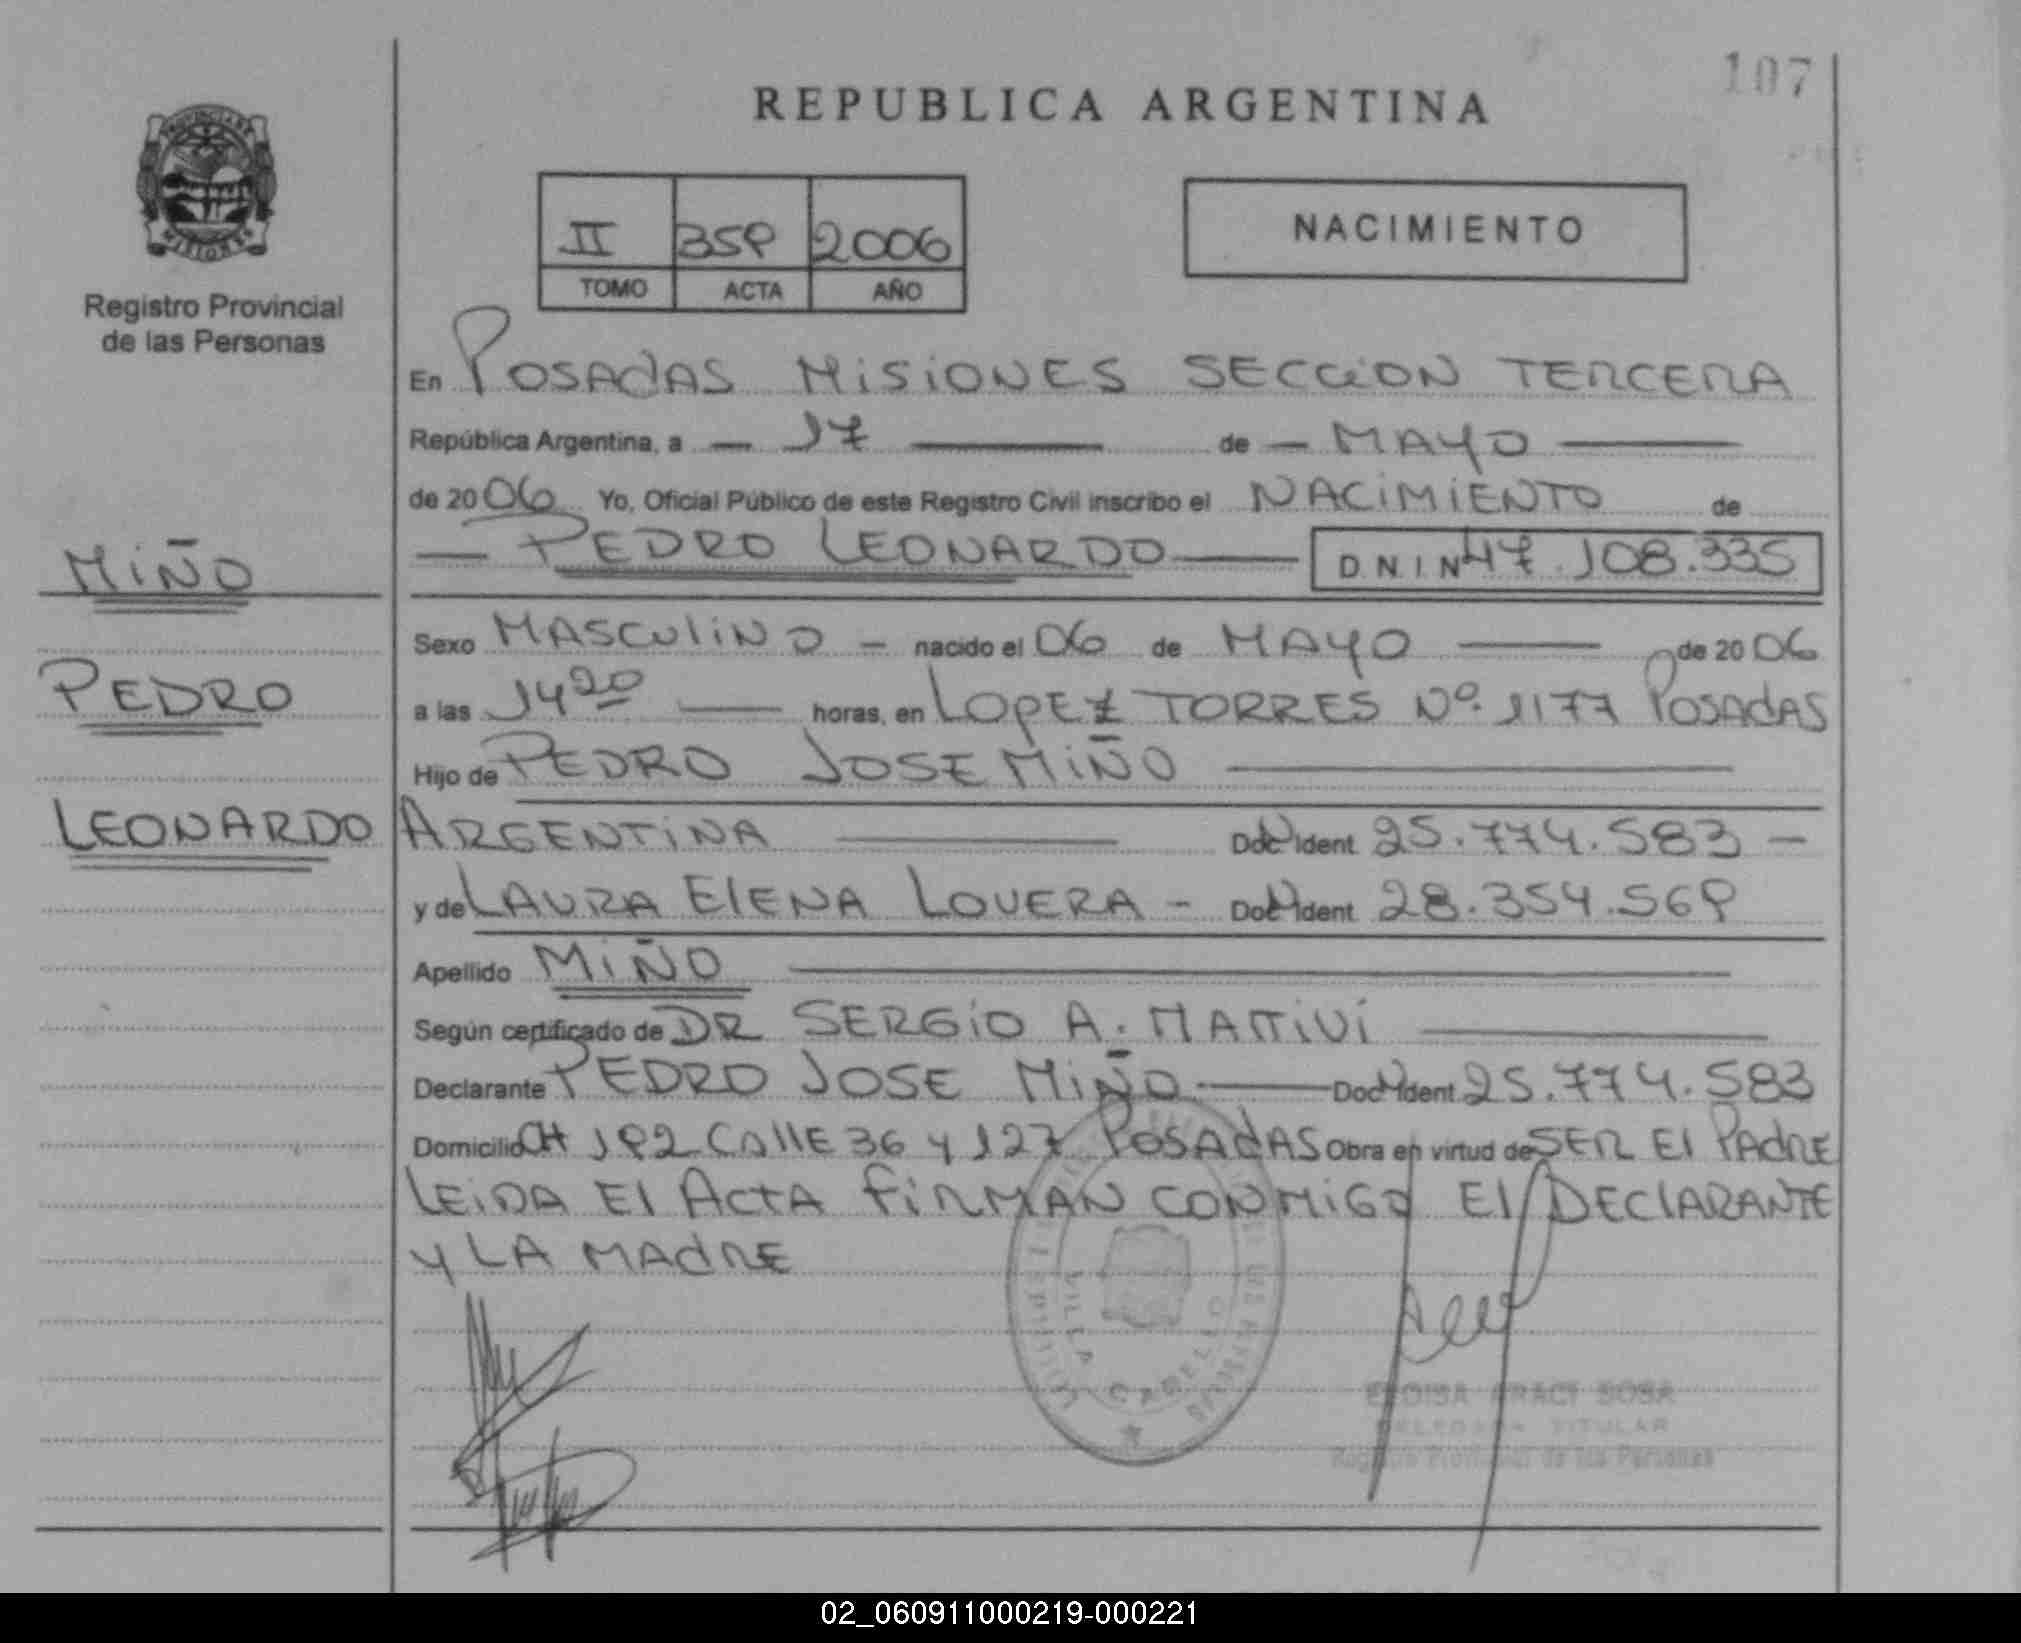 107
REPUBLICA ARGENTINA
PROVINCIA DE
MISIONES
Registro Provincial
de las Personas
II 359 2006
TOMO ACTA AÑO
NACIMIENTO
En POSADAS MISIONES SECCION TERCERA
República Argentina, a — 17 — de — MAYO —
de 2006 Yo, Oficial Público de este Registro Civil inscribo el NACIMIENTO de
— PEDRO LEONARDO — D.N.I. Nº 47.108.335
MIÑO
PEDRO
LEONARDO
Sexo MASCULINO — nacido el 06 de MAYO — de 2006
a las 14 20 — horas, en LOPEZ TORRES Nº 1177 POSADAS
Hijo de PEDRO JOSE MIÑO —
ARGENTINA — Doc. Ident. 25.774.583 —
y de LAURA ELENA LOVERA - Doc. Ident. 28.354.569
Apellido MIÑO —
Según certificado de DR SERGIO A. MATTIVI —
Declarante PEDRO JOSE MIÑO — Doc. Ident. 25.774.583
Domicilio CH 192 CALLE 36 y 127 POSADAS Obra en virtud de SER El PADRE
LEIDA El ACTA FIRMAN CONMIGO El DECLARANTE
y LA MADRE
VILLA CABELLO
ELOISA ARACI SOSA
DELEGADA TITULAR
Registro Provincial de las Personas
02_060911000219-000221